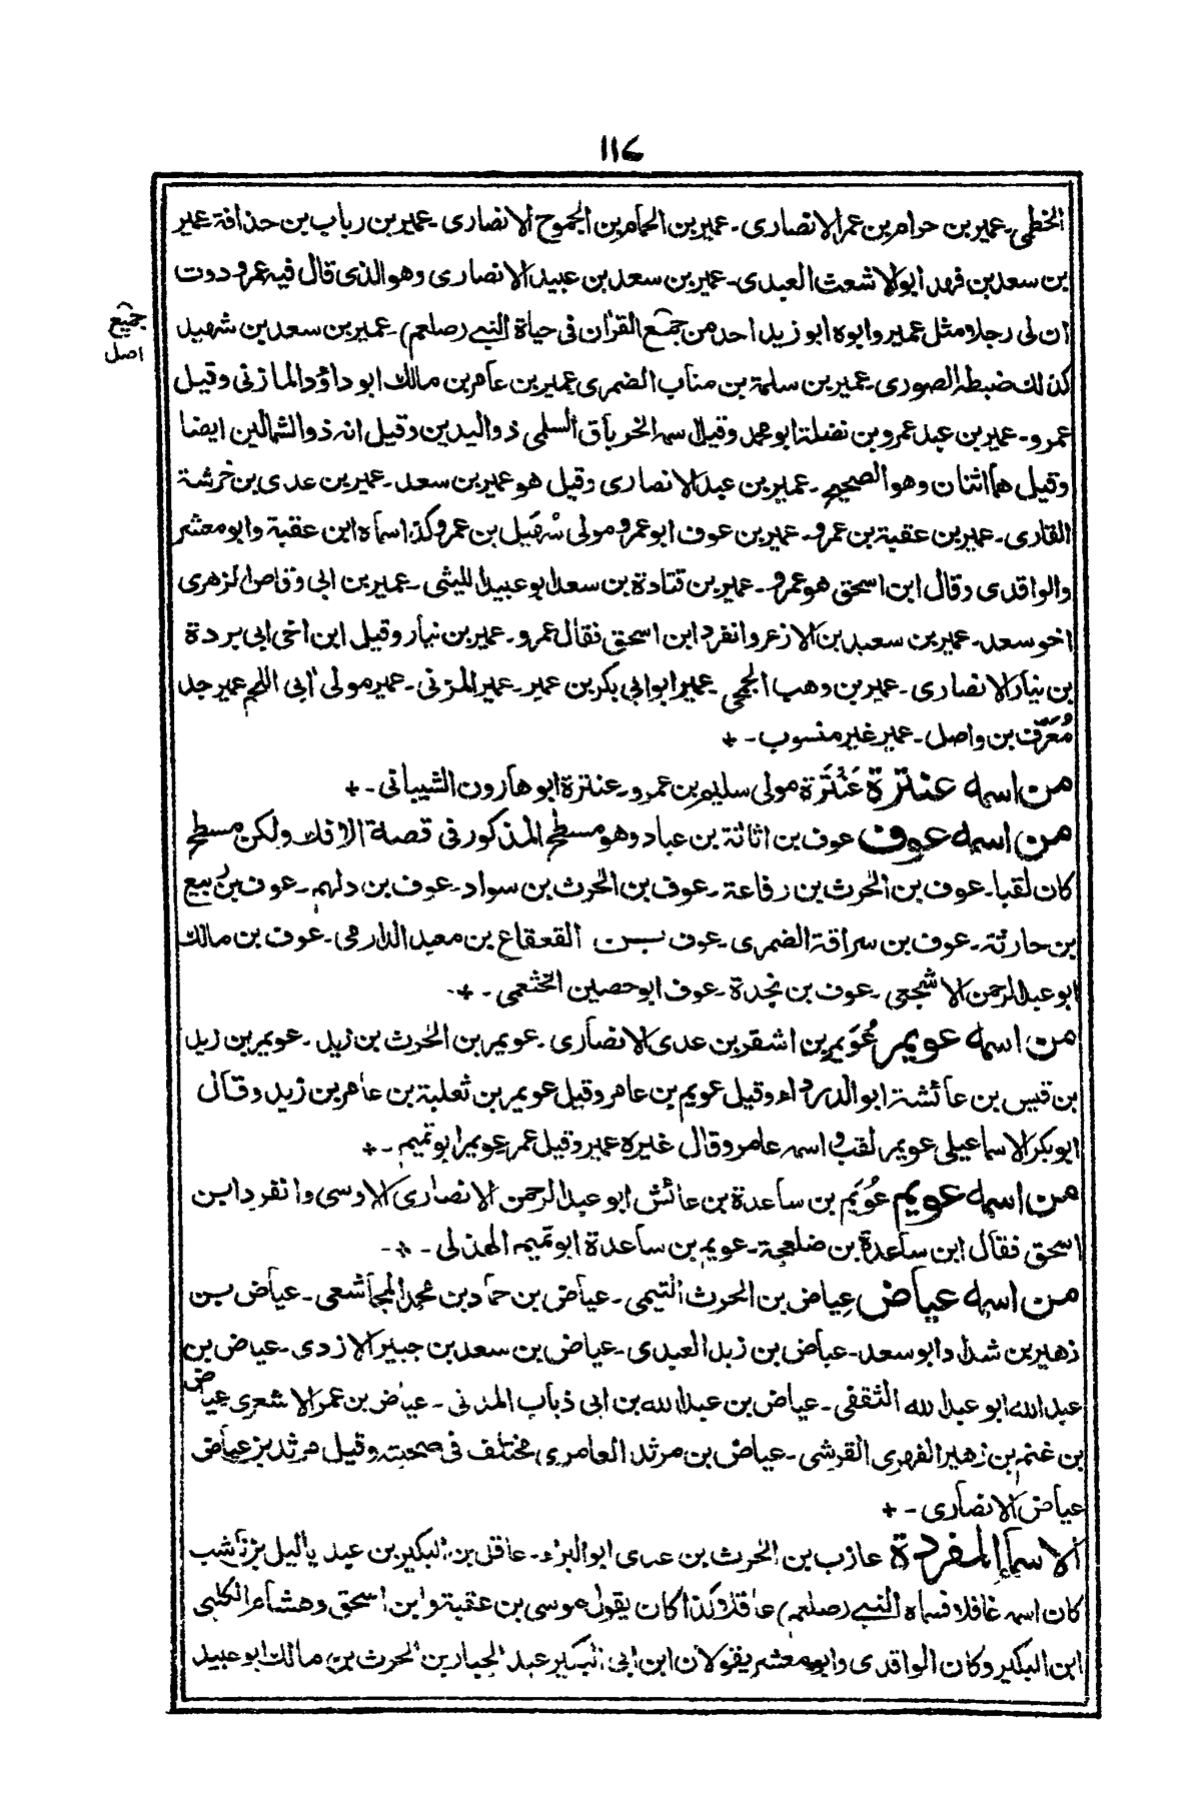 ١١٤
الخطمي۔ عمير بن حرام بن عمر الانصارى۔ عمير بن الحمام بن الجموح الانصارى۔ عمير بن رباب بن حذافة عمير
بن سعد بن فهد ابو الاشعث العبدى۔ عمير بن سعد بن عبيد الانصارى وهو الذى قال فيه عمر وددت
ان لى رجلا مثل عمير وابوه ابو زيد احد من جمع القرآن فى حياة النبى (صلعم)۔ عمير بن سعد بن شهيد
جميع
اصل
كذلك ضبطه الصورى۔ عمير بن سلمة بن مناب الضمرى عمير بن عامر بن مالك ابو داؤد المازنى وقيل
عمرو۔ عمير بن عبد عمرو بن نضلة ابو محمد وقيل اسمه الخرباق السلمى ذو اليدين وقيل انه ذو الشمالين ايضا
وقيل هما اثنان وهو الصحيح۔ عمير بن عبد الانصارى وقيل هو عمير بن سعد۔ عمير بن عدى بن خرشة
القارى۔ عمير بن عقبة بن عمرو۔ عمير بن عوف ابو عمرو مولى سُهَيل بن عمرو كذا سماه ابن عقبة وابو معشر
والواقدى وقال ابن اسحق هو عمرو۔ عمير بن قتادة بن سعد ابو عبيد الليثى۔ عمير بن ابى وقاص الزهرى
اخو سعد۔ عمير بن سعيد بن الازعر وانفرد ابن اسحق فقال عمرو۔ عمير بن نيار وقيل ابن اخى ابى بردة
بن نيار الانصارى۔ عمير بن وهب الجمحى۔ عمير ابو ابى بكر بن عمير۔ عمير المزنى۔ عمير مولى ابى اللحم عمير جد
مُعَرِّف بن واصل۔ عمير غير منسوب۔ +
من اسمه عنترة عَنْتَرَة مولى سليم بن عمرو۔ عنترة ابو هارون الشيبانى۔ +
من اسمه عوف عوف بن اثاثة بن عباد وهو مسطح المذكور فى قصة الافك ولكن مسطح
كان لقبا۔ عوف بن الحرث بن رفاعة۔ عوف بن الحرث بن سواد۔ عوف بن دلهم۔ عوف بن ربيع
بن حارثة۔ عوف بن سراقة الضمرى۔ عوف بن القعقاع بن معبد الدارمى۔ عوف بن مالك
ابو عبد الرحمن الاشجعى۔ عوف بن نجدة۔ عوف ابو حصين الخثعمى۔ +
من اسمه عويمر عُوَيمر بن اشقر بن عدى الانصارى۔ عويمر بن الحرث بن زيد۔ عويمر بن زيد
بن قيس بن عائشة ابو الدرداء وقيل عويم بن عامر وقيل عويمر بن ثعلبة بن عامر بن زيد وقال
ابو بكر الاسماعيلى عويمر لقب واسمه عامر وقال غيره عمير وقيل عمر عويمر ابو تميم۔ +
من اسمه عويم عُوَيَم بن ساعدة بن عائش ابو عبد الرحمن الانصارى الاوسى وانفرد ابن
اسحق فقال ابن ساعدة بن ضلعجة۔ عويم بن ساعدة ابو تميمه الهذلى۔ +
من اسمه عياض عِياض بن الحرث التيمى۔ عياض بن حماد بن محمد المجاشعى۔ عياض بن
زهير بن شداد ابو سعد۔ عياض بن زيد العبدى۔ عياض بن سعد بن جبير الازدى۔ عياض بن
عبد الله ابو عبد الله الثقفى۔ عياض بن عبد الله بن ابى ذباب المدنى۔ عياض بن عمر الاشعرى عياض
بن غنم بن زهير الفهرى القرشى۔ عياض بن مرثد العامرى مختلف فى صحبته وقيل مرثد بن عياض
عياض الانصارى۔ +
الاسماء المفردة عازب بن الحرث بن عدى ابو البراء۔ عاقل بن البكير بن عبد ياليل بن ناشب
كان اسمه غافلا فسماه النبى (صلعم) عاقلا وكذا كان يقول موسى بن عقبة وابن اسحق وهشام الكلبى
ابن البكير وكان الواقدى وابو معشر يقولان ابن ابى البكير عبد الجبار بن الحرث بن مالك ابو عبيد